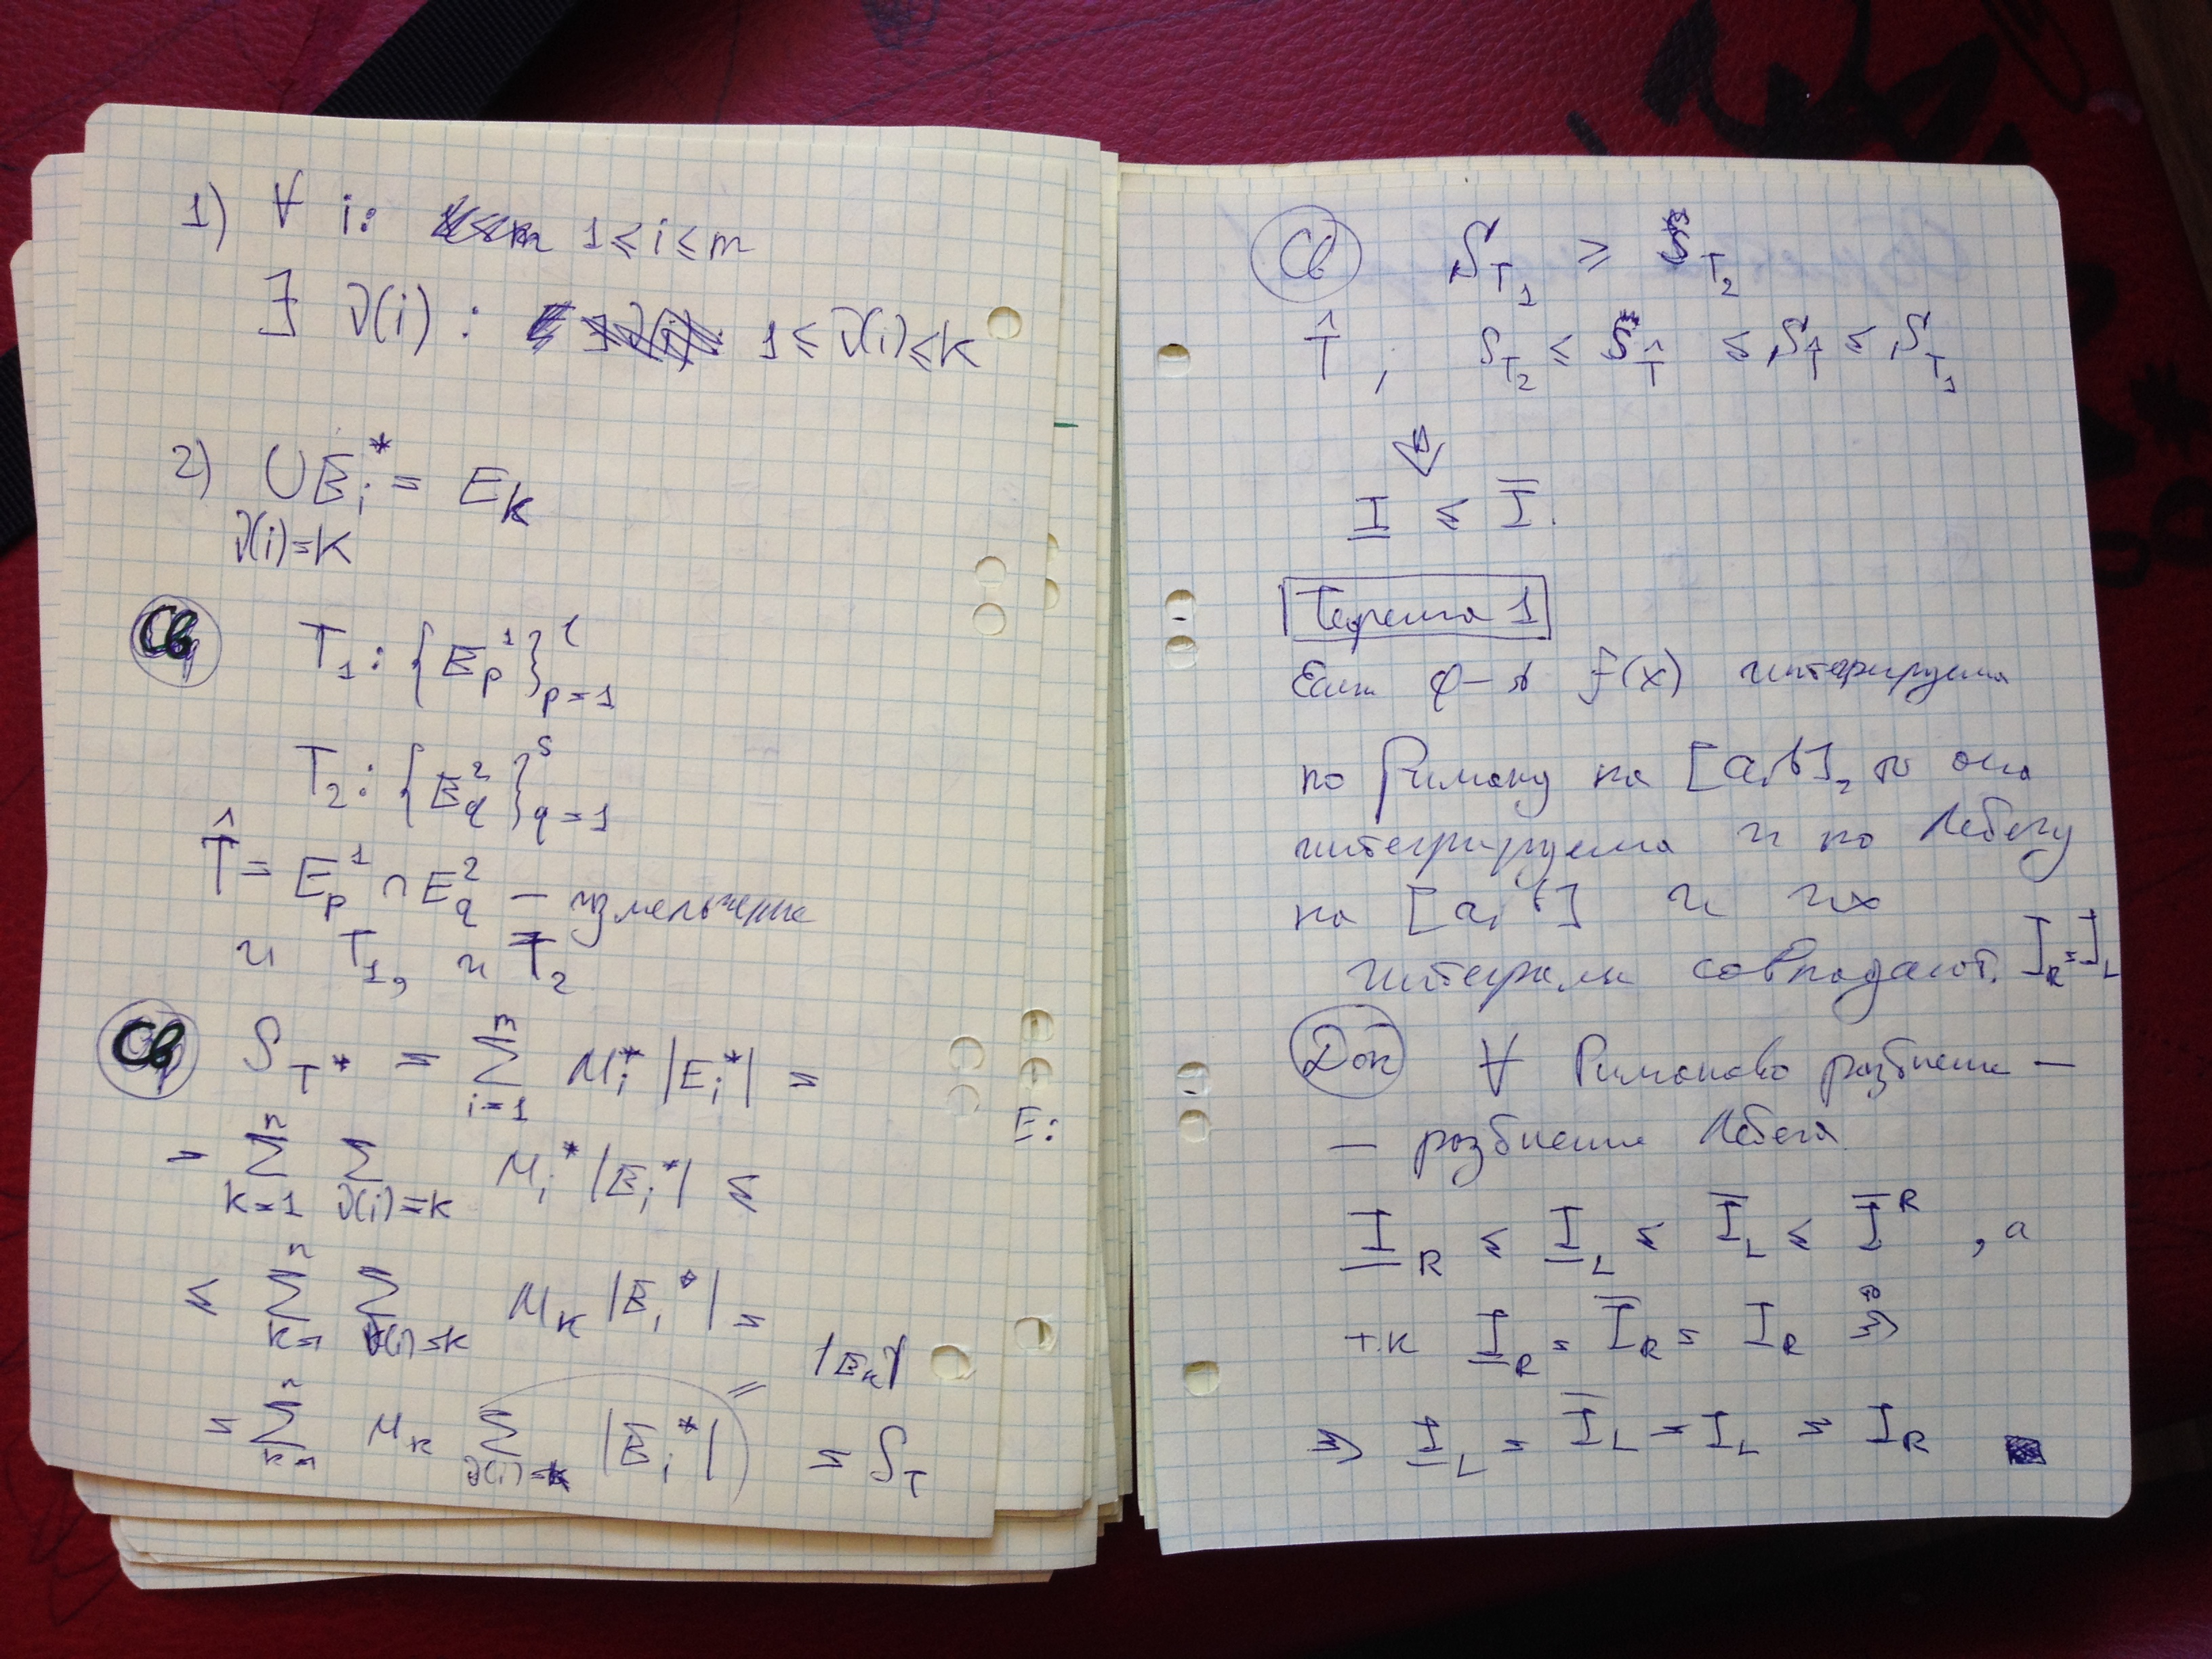 1) ∀ i: 1 ≤ i ≤ m
∃ ν(i) : 1 ≤ ν(i) ≤ k
2) ∪ E_i^* = E_k
ν(i)=k
Св T_1 : {E_p^1}_{p=1}^l
T_2 : {E_q^2}_{q=1}^s
T̂ = E_p^1 ∩ E_q^2 — измельчение
и T_1, и T_2
Св S_{T^*} = ∑_{i=1}^m M_i^* |E_i^*| =
= ∑_{k=1}^n ∑_{ν(i)=k} M_i^* |E_i^*| ≤
≤ ∑_{k=1}^n ∑_{ν(i)=k} M_k |E_i^*| =
|E_k|
= ∑_{k=1}^n M_k ∑_{ν(i)=k} |E_i^*| = S_T
E:
Св S_{T_1} ≥ s_{T_2}
T̂, s_{T_2} ≤ s_{T̂} ≤ S_{T̂} ≤ S_{T_1}
⇓
\underline{I} ≤ \overline{I}.
Теорема 1
Если ф-я f(x) интегрируема
по Риману на [a,b], то она
интегрируема и по Лебегу
на [a,b] и их
интегралы совпадают. I_R = I_L
Док ∀ Риманово разбиение —
— разбиение Лебега
\underline{I}_R ≤ \underline{I}_L ≤ \overline{I}_L ≤ \overline{I}^R, а
т.к \underline{I}_R = \overline{I}_R = I_R ⇒
⇒ \underline{I}_L = \overline{I}_L = I_L = I_R ■